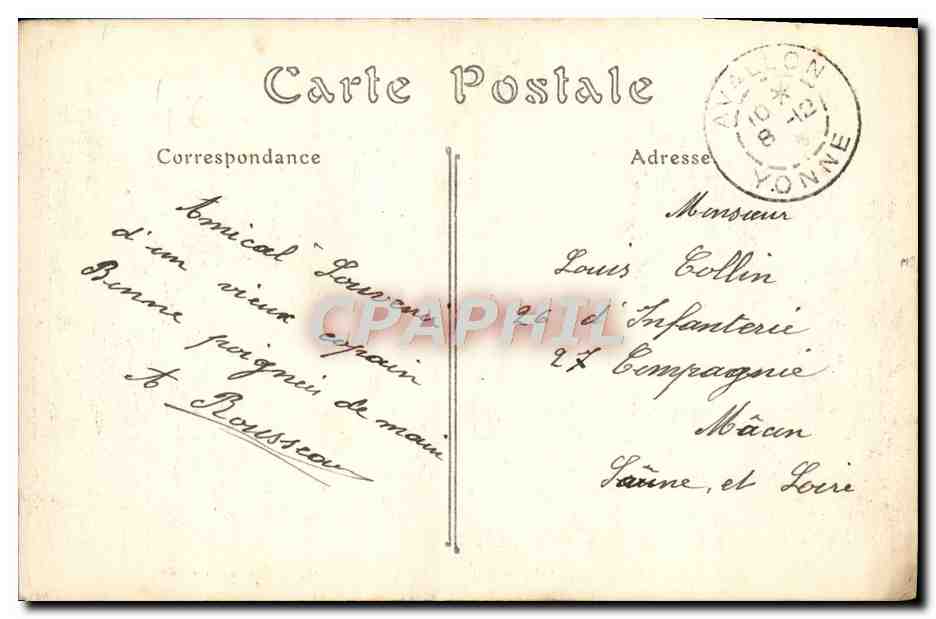 Carte Postale
AVALLON
*
10 -12
8 *
YONNE
Correspondance
Adresse
Amical Souvenir
d'un vieux copain
Bonne poignéis de main
A Rousseau
Monsieur
Louis Collin
26 d'Infanterie
27 Compagnie
Mâcon
Saône, et Loire
CPAPHIL